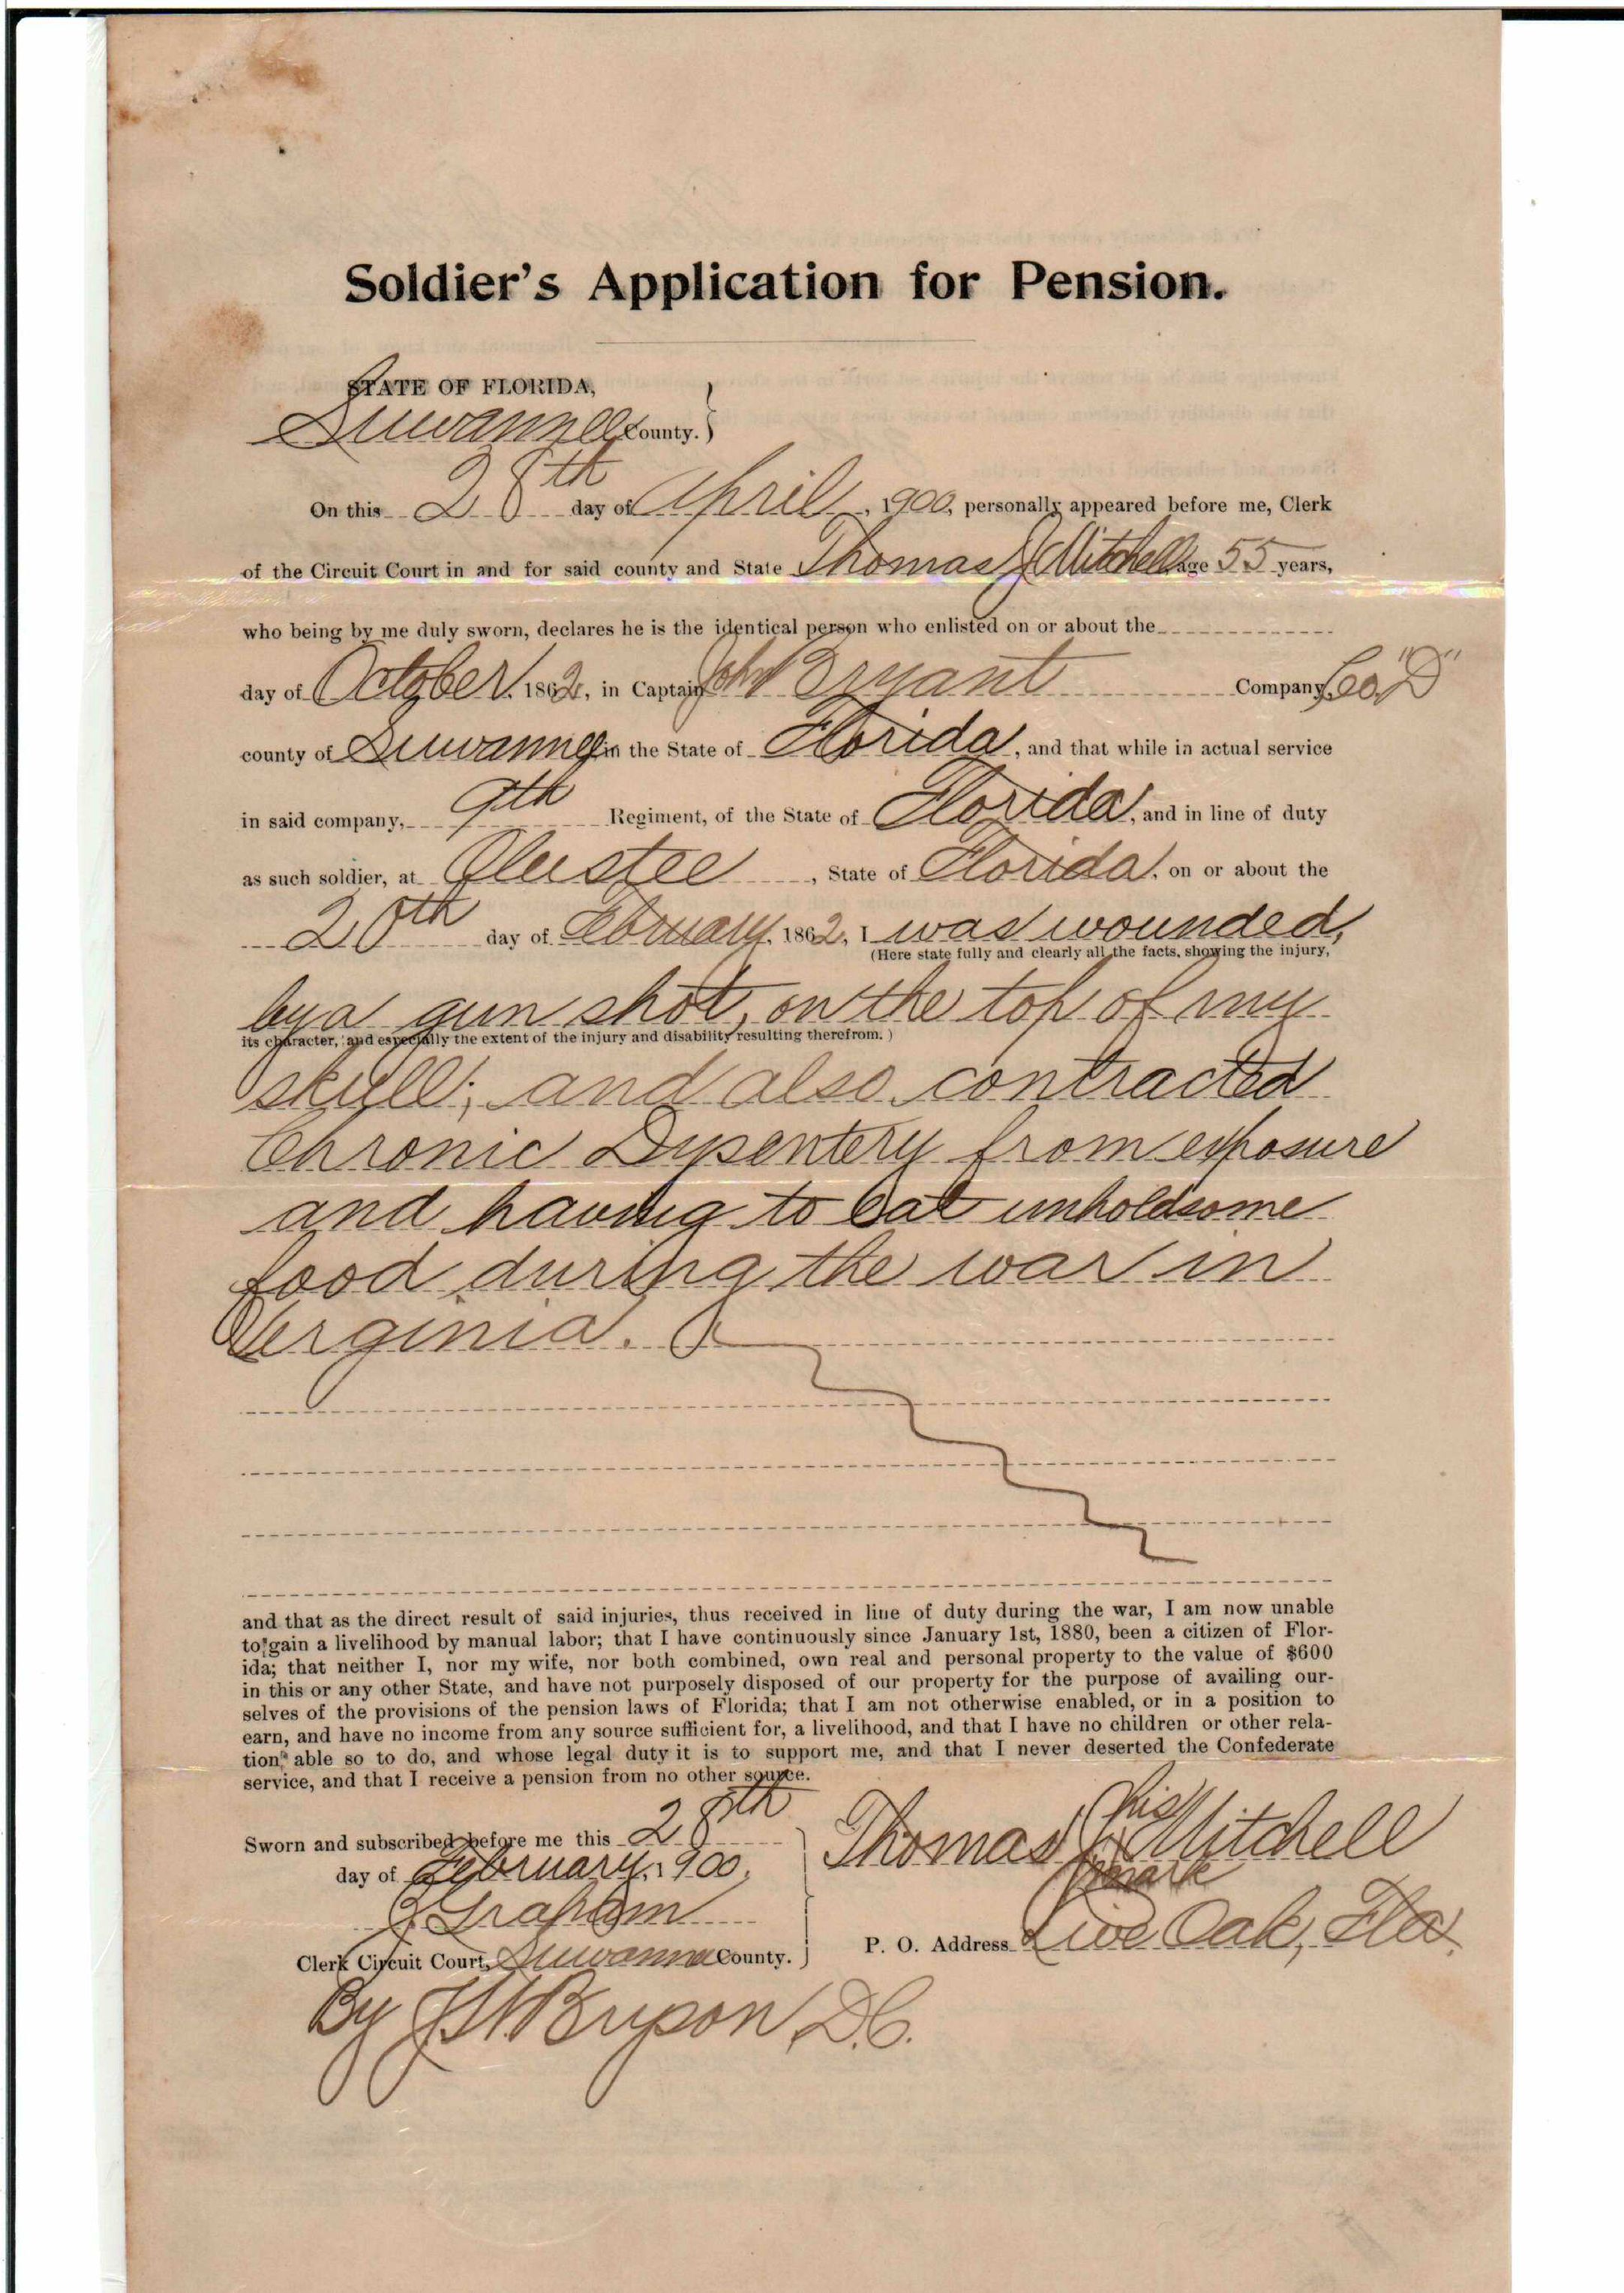 Soldier's Application for Pension.
STATE OF FLORIDA,
Suwannee County.
On this 28th day of April, 1900, personally appeared before me, Clerk
of the Circuit Court in and for said county and State Thomas J Mitchell age 55 years,
who being by me duly sworn, declares he is the identical person who enlisted on or about the
day of October, 1862, in Captain John Bryant Company, Co. "D"
county of Suwannee in the State of Florida, and that while in actual service
in said company, 9th Regiment, of the State of Florida, and in line of duty
as such soldier, at Olustee, State of Florida, on or about the
20th day of February, 1862, I was wounded,
(Here state fully and clearly all the facts, showing the injury,
by a gun shot, on the top of my
its character, and especially the extent of the injury and disability resulting therefrom.)
skull; and also contracted
Chronic Dysentery from exposure
and having to eat unholdsome
food during the war in
Verginia.
and that as the direct result of said injuries, thus received in line of duty during the war, I am now unable
to gain a livelihood by manual labor; that I have continuously since January 1st, 1880, been a citizen of Flor-
ida; that neither I, nor my wife, nor both combined, own real and personal property to the value of $600
in this or any other State, and have not purposely disposed of our property for the purpose of availing our-
selves of the provisions of the pension laws of Florida; that I am not otherwise enabled, or in a position to
earn, and have no income from any source sufficient for, a livelihood, and that I have no children or other rela-
tion, able so to do, and whose legal duty it is to support me, and that I never deserted the Confederate
service, and that I receive a pension from no other source.
Sworn and subscribed before me this 28th
day of February, 1900.
Graham
Clerk Circuit Court, Suwannee County.
By J W Bryson, D.C.
his
Thomas J Mitchell
mark
P. O. Address Live Oak, Fla.